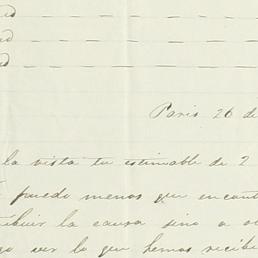 Paris 26 de
la vista tu estimable de 2
puedo menos que encont
la causa sino a
ver lo que hemos recibi